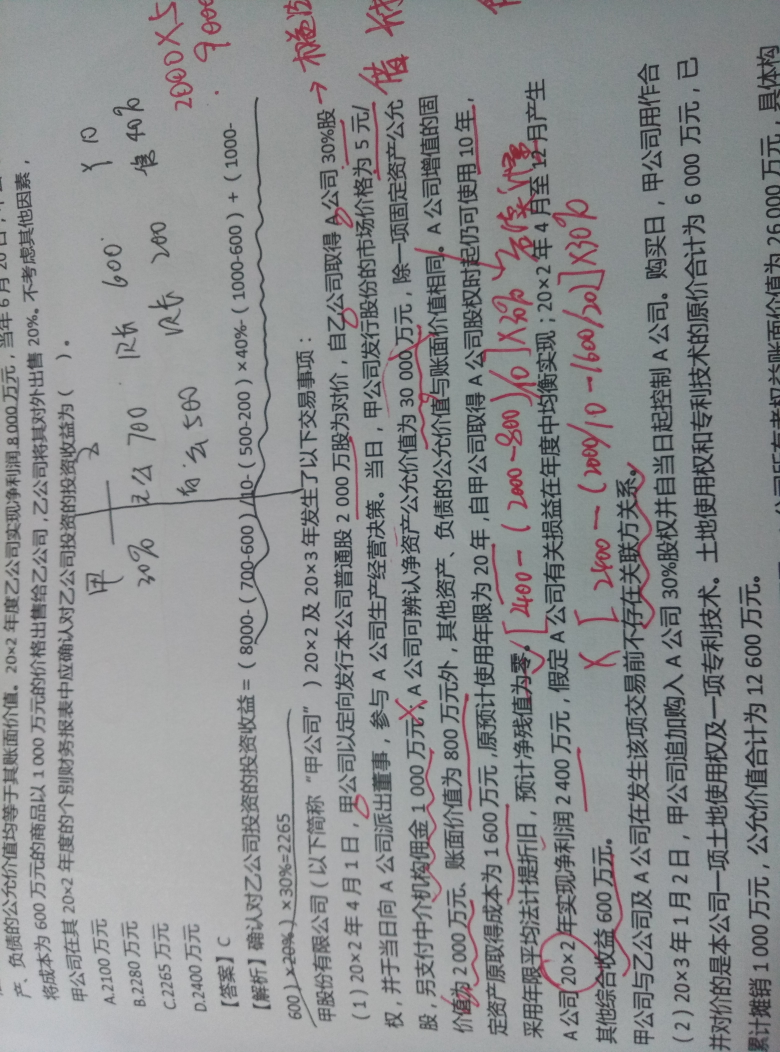 产、负债的公允价值均等于其账面价值。20×2 年度乙公司实现净利润 8 000 万元，当年 6 月 20 日，
将成本为 600 万元的商品以 1 000 万元的价格出售给乙公司，乙公司将其对外出售 20%。不考虑其他因素，
甲公司在其 20×2 年度的个别财务报表中应确认对乙公司投资的投资收益为（ ）。
A.2100 万元
B.2280 万元
C.2265 万元
D.2400 万元
甲 乙
30% 公 700 账 600
公 500 账 200 售 40%
【答案】C
【解析】确认对乙公司投资的投资收益＝（8000-（700-600）/10-（500-200）×40%-（1000-600）+（1000-
600）×20%）×30%=2265
2000×5
9000
甲股份有限公司（以下简称“甲公司”）20×2 及 20×3 年发生了以下交易事项：
（1）20×2 年 4 月 1 日，甲公司以定向发行本公司普通股 2 000 万股为对价，自乙公司取得 A 公司 30%股
权，并于当日向 A 公司派出董事，参与 A 公司生产经营决策。当日，甲公司发行股份的市场价格为 5 元/
股，另支付中介机构佣金 1 000 万元；A 公司可辨认净资产公允价值为 30 000 万元，除一项固定资产公允
价值为 2 000 万元、账面价值为 800 万元外，其他资产、负债的公允价值与账面价值相同。A 公司增值的固
定资产原取得成本为 1 600 万元，原预计使用年限为 20 年，自甲公司取得 A 公司股权时起仍可使用 10 年，
采用年限平均法计提折旧，预计净残值为零。
[2400-(2000-800)/10]×30%
A 公司 20×2 年实现净利润 2 400 万元，假定 A 公司有关损益在年度中均衡实现；20×2 年 4 月至 12 月产生
× [2400-(2000/10-1600/20)]×30%
其他综合收益 600 万元。
甲公司与乙公司及 A 公司在发生该项交易前不存在关联方关系。
（2）20×3 年 1 月 2 日，甲公司追加购入 A 公司 30%股权并自当日起控制 A 公司。购买日，甲公司用作合
并对价的是本公司一项土地使用权及一项专利技术。土地使用权和专利技术的原价合计为 6 000 万元，已
累计摊销 1 000 万元，公允价值合计为 12 600 万元。
公司所有者权益账面价值为 26 000 万元，具体构